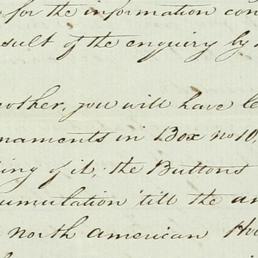 for the information con
sult of the enquiry by
other, you will have le
naments in Box no 10,
ing of it, the Buttons
umulation 'till the an
north american Ho